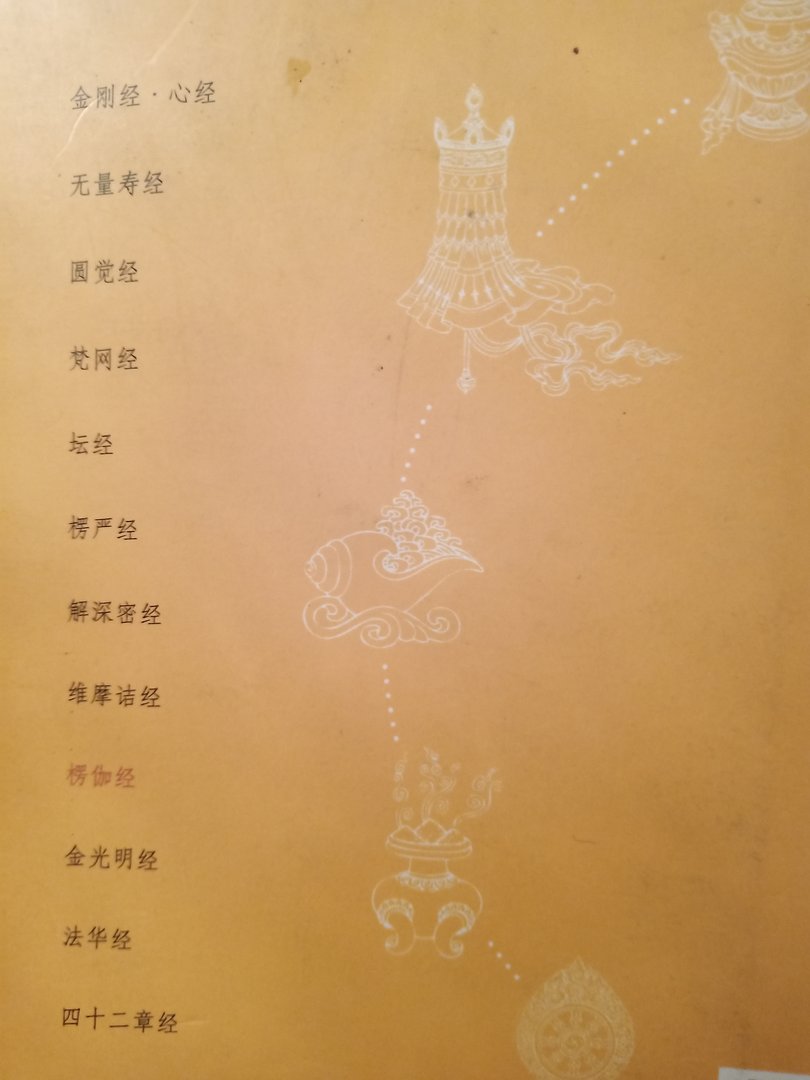 金刚经·心经
无量寿经
圆觉经
梵网经
坛经
楞严经
解深密经
维摩诘经
楞伽经
金光明经
法华经
四十二章经